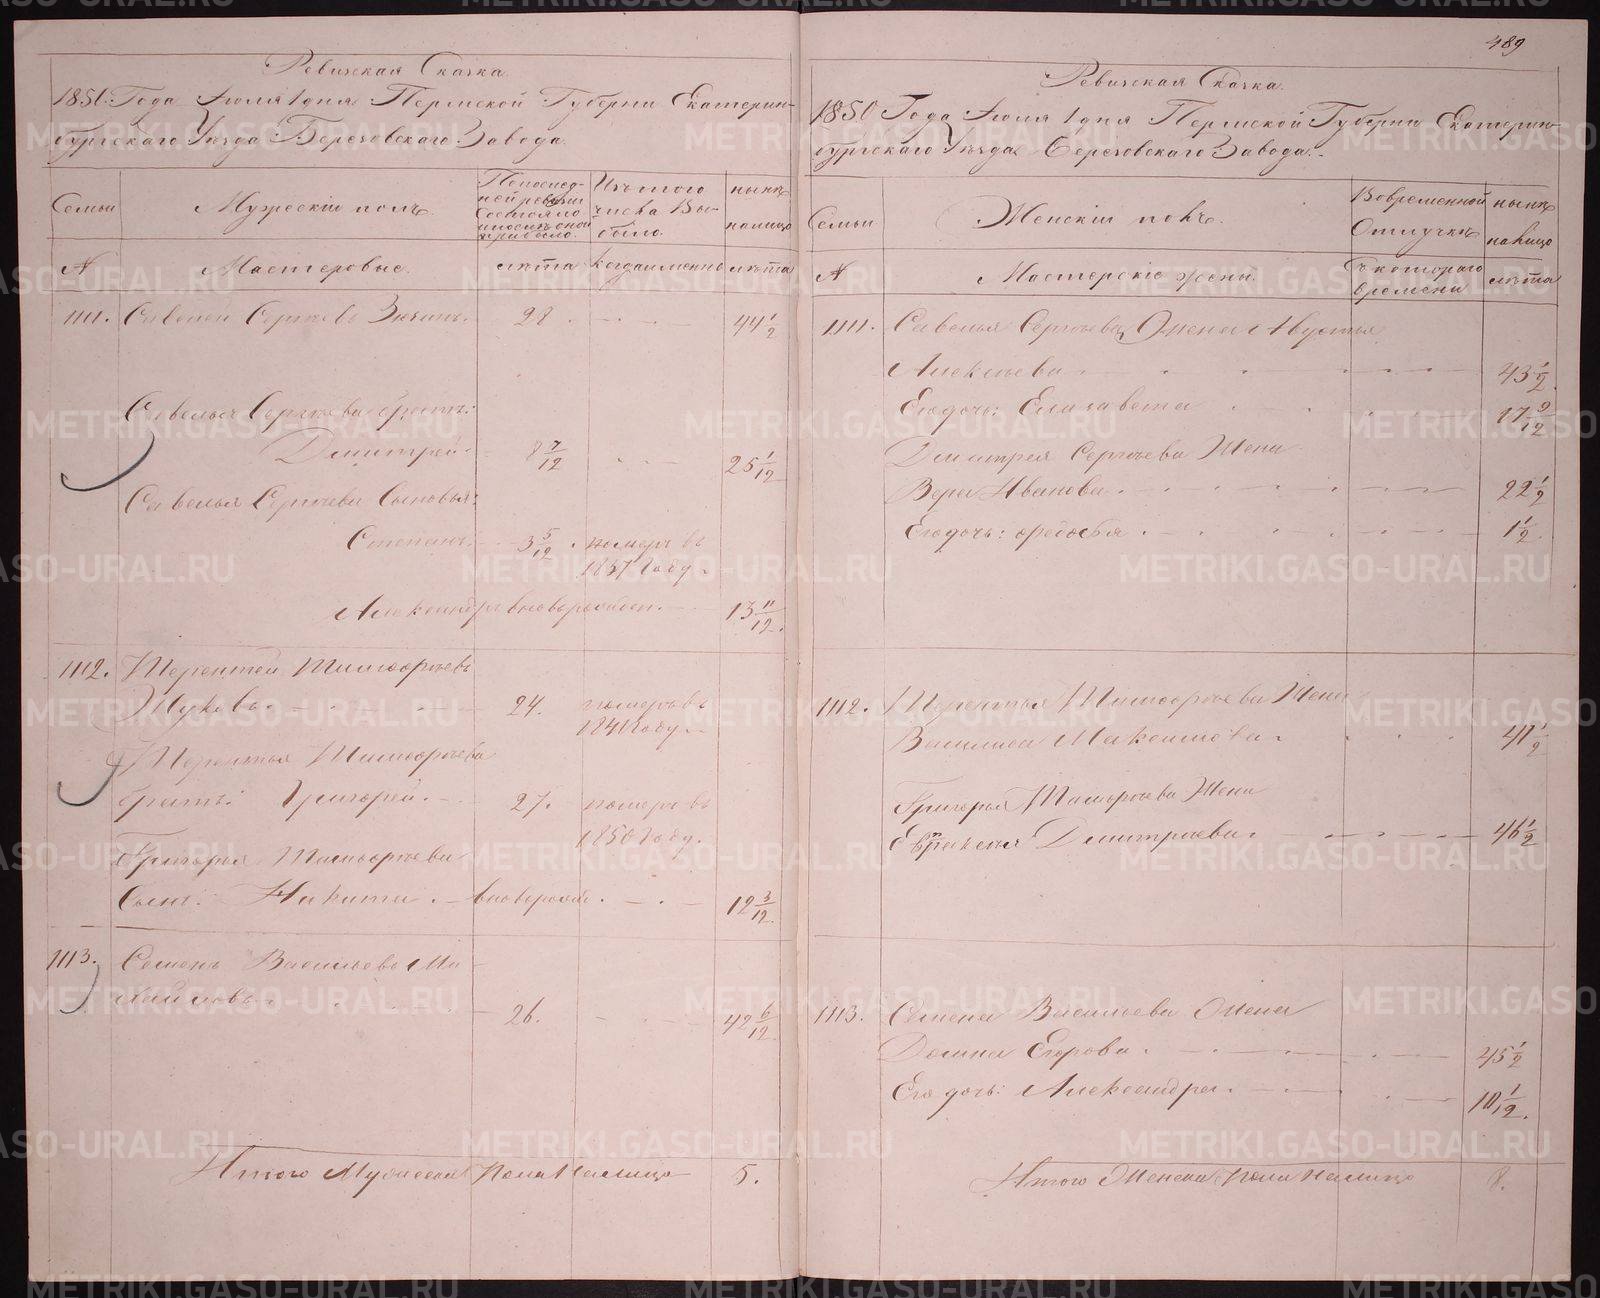 489
Ревижская Скачка.
1850. Года Июля 1 дня Пермской Губерни Екатерин-
бургскаго Уѣзда Березовскаго Завода.
Семьи
Мужескій полъ.
По послед-
ней ревизіи
состояло
и после оной
прибыло.
Изъ того
числа Вы-
было.
нынѣ
налицо
№
Мастеровые.
лѣта
Когда именно
лѣта
1111. Савелей Сергѣевъ Зючинъ. 28. 44 1/2
Савелья Сергѣева братъ:
Дмитрей. 8 7/12 25 1/12
Савелья Сергѣева Сыновья:
Степанъ. 3 5/12. померъ въ
1837 Году.
Александръ вноворожден. 13 11/12.
1112. Терентей Тимофѣевъ
Жуковъ. 24. померъ въ
1841 Году.
Терентья Тимофѣева
братъ: Григорей. 27. померъ въ
1850 Году.
Григорья Тимофѣева
Сынъ: Никита. вноворожд. 12 3/12.
1113. Семенъ Васильевъ Ми-
хайловъ. 26. 42 6/12
Итого Мужеска пола налицо 5.
Ревижская Скачка.
1850 Года Июля 1 дня Пермской Губерни Екатерин-
бургскаго Уѣзда Березовскаго Завода.
Семьи
Женскій полъ.
Вовременной
Отлучкѣ
нынѣ
налицо
№
Мастерскіе жены.
съ котораго
времени
лѣта
1111. Савелья Сергѣева Жена Авдотья
Алексѣева 43 1/2.
Его дочь: Елизавета 17 9/12
Дмитрея Сергѣева Жена
Вера Иванова. 22 1/2
Его дочь: Федосья. 1 1/2.
1112. Терентья Тимофѣева Жена
Василиса Максимова. 41 1/2
Григорья Тимофѣева Жена
Евраксья Дмитрѣева. 46 1/2
1113. Семена Васильева Жена
Домна Егорова. 45 1/2
Его дочь: Александра. 10 1/12.
Итого Женска пола налицо 8.
METRIKI.GASO-URAL.RU